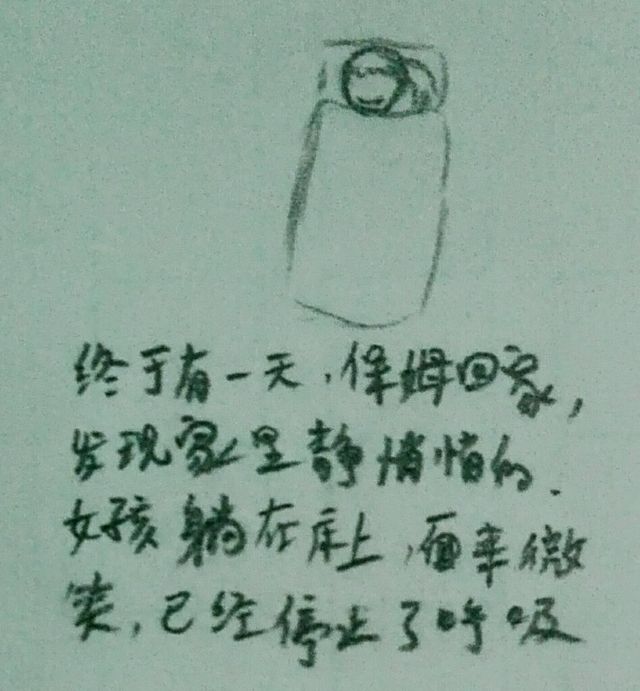 终于有一天，保姆回家，
发现家里静悄悄的.
女孩躺在床上，面带微
笑，已经停止了呼吸